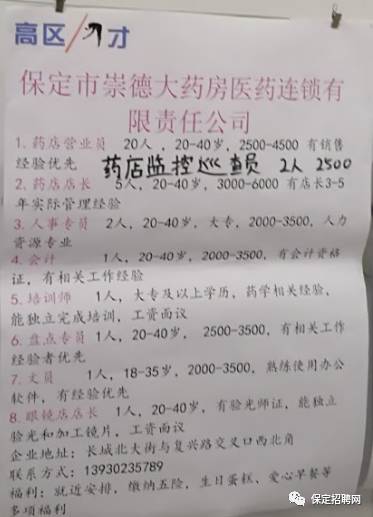 高区/才
保定市崇德大药房医药连锁有
限责任公司
1. 药店营业员 20人，20-40岁，2500-4500 有销售
经验优先 药店监控巡查员 2人 2500
2. 药店店长 5人，20-40岁，3000-6000 有店长3-5
年实际管理经验
3. 人事专员 2人，20-40岁，大专，2000-3500，人力
资源专业
4. 会计 1人，20-40岁，2000-3500，有会计资格
证，有相关工作经验
5. 培训师 1人，大专及以上学历，药学相关经验，
能独立完成培训，工资面议
6. 盘点专员 1人，20-40岁， 2500-3500，有相关工作
经验者优先
7. 文员 1人，18-35岁，2000-3500，熟练使用办公
软件，有经验优先
8. 眼镜店店长 1人，20-40岁，有验光师证，能独立
验光和加工镜片，工资面议
企业地址：长城北大街与复兴路交叉口西北角
联系方式：13930235789
福利：就近安排，缴纳五险，生日蛋糕、爱心早餐等
多项福利
保定招聘网